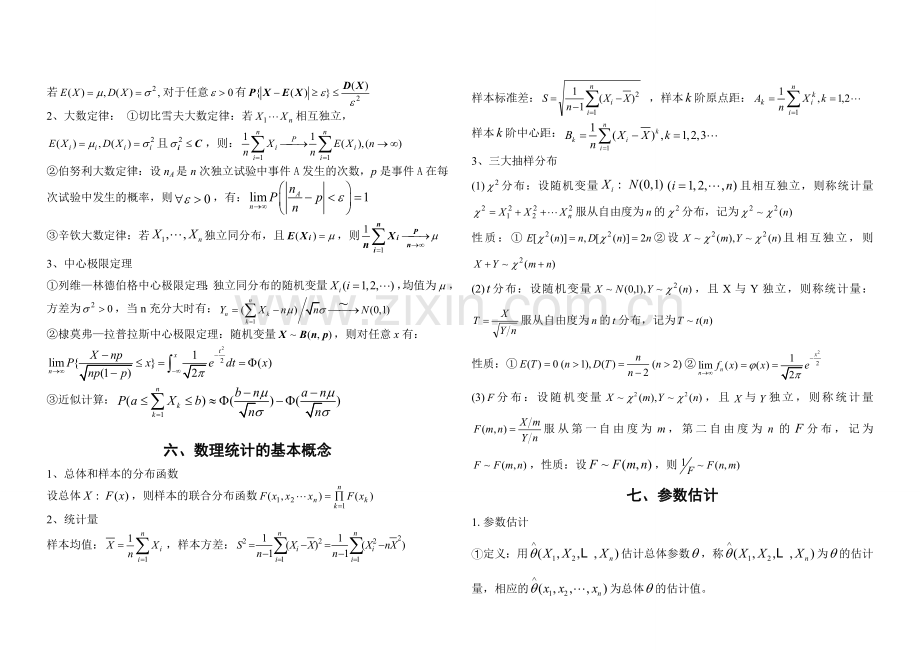 若 E(X) = μ, D(X) = σ², 对于任意 ε > 0 有 P{|X − E(X)| ≥ ε} ≤ D(X)/ε²
2、大数定律： ①切比雪夫大数定律：若 X₁⋯Xₙ 相互独立，
E(Xᵢ) = μᵢ, D(Xᵢ) = σᵢ² 且 σᵢ² ≤ C，则：1/n ∑ᵢ₌₁ⁿ Xᵢ —P→ 1/n ∑ᵢ₌₁ⁿ E(Xᵢ), (n → ∞)
②伯努利大数定律：设 n_A 是 n 次独立试验中事件 A 发生的次数，p 是事件 A 在每
次试验中发生的概率，则 ∀ε > 0，有：lim_{n→∞} P(|n_A/n − p| < ε) = 1
③辛钦大数定律：若 X₁,⋯,Xₙ 独立同分布，且 E(Xᵢ) = μ，则 1/n ∑ᵢ₌₁ⁿ Xᵢ —P→_{n→∞} μ
3、中心极限定理
①列维—林德伯格中心极限定理：独立同分布的随机变量 Xᵢ (i = 1,2,⋯)，均值为 μ，
方差为 σ² > 0，当 n 充分大时有：Yₙ = (∑ₖ₌₁ⁿ Xₖ − nμ)/√nσ —~→ N(0,1)
②棣莫弗—拉普拉斯中心极限定理：随机变量 X ~ B(n, p)，则对任意 x 有：
lim_{n→∞} P{(X − np)/√(np(1 − p)) ≤ x} = ∫_{−∞}^{x} 1/√(2π) e^{−t²/2} dt = Φ(x)
③近似计算：P(a ≤ ∑ₖ₌₁ⁿ Xₖ ≤ b) ≈ Φ((b − nμ)/(√nσ)) − Φ((a − nμ)/(√nσ))
六、数理统计的基本概念
1、总体和样本的分布函数
设总体 X : F(x)，则样本的联合分布函数 F(x₁, x₂⋯xₙ) = ∏ₖ₌₁ⁿ F(xₖ)
2、统计量
样本均值：X̄ = 1/n ∑ᵢ₌₁ⁿ Xᵢ，样本方差：S² = 1/(n−1) ∑ᵢ₌₁ⁿ (Xᵢ − X̄)² = 1/(n−1) ∑ᵢ₌₁ⁿ (Xᵢ² − nX̄²)
样本标准差：S = √(1/(n−1) ∑ᵢ₌₁ⁿ (Xᵢ − X̄)²) ，样本 k 阶原点距：Aₖ = 1/n ∑ᵢ₌₁ⁿ Xᵢᵏ, k = 1,2⋯
样本 k 阶中心距：Bₖ = 1/n ∑ᵢ₌₁ⁿ (Xᵢ − X̄)ᵏ, k = 1,2,3⋯
3、三大抽样分布
(1) χ² 分布：设随机变量 Xᵢ : N(0,1) (i = 1,2,⋯,n) 且相互独立，则称统计量
χ² = X₁² + X₂² + ⋯Xₙ² 服从自由度为 n 的 χ² 分布，记为 χ² ~ χ²(n)
性质：① E[χ²(n)] = n, D[χ²(n)] = 2n ②设 X ~ χ²(m), Y ~ χ²(n) 且相互独立，则
X + Y ~ χ²(m + n)
(2) t 分布：设随机变量 X ~ N(0,1), Y ~ χ²(n)，且 X 与 Y 独立，则称统计量：
T = X/√(Y/n) 服从自由度为 n 的 t 分布，记为 T ~ t(n)
性质：① E(T) = 0 (n > 1), D(T) = n/(n−2) (n > 2) ② lim_{n→∞} fₙ(x) = φ(x) = 1/√(2π) e^{−x²/2}
(3) F 分布：设随机变量 X ~ χ²(m), Y ~ χ²(n)，且 X 与 Y 独立，则称统计量
F(m, n) = (X/m)/(Y/n) 服从第一自由度为 m，第二自由度为 n 的 F 分布，记为
F ~ F(m, n)，性质：设 F ~ F(m, n)，则 1/F ~ F(n, m)
七、参数估计
1. 参数估计
①定义：用 θ̂(X₁, X₂, L , Xₙ) 估计总体参数 θ，称 θ̂(X₁, X₂, L , Xₙ) 为 θ 的估计
量，相应的 θ̂(x₁, x₂, ⋯, xₙ) 为总体 θ 的估计值。
www.zixin.com.cn